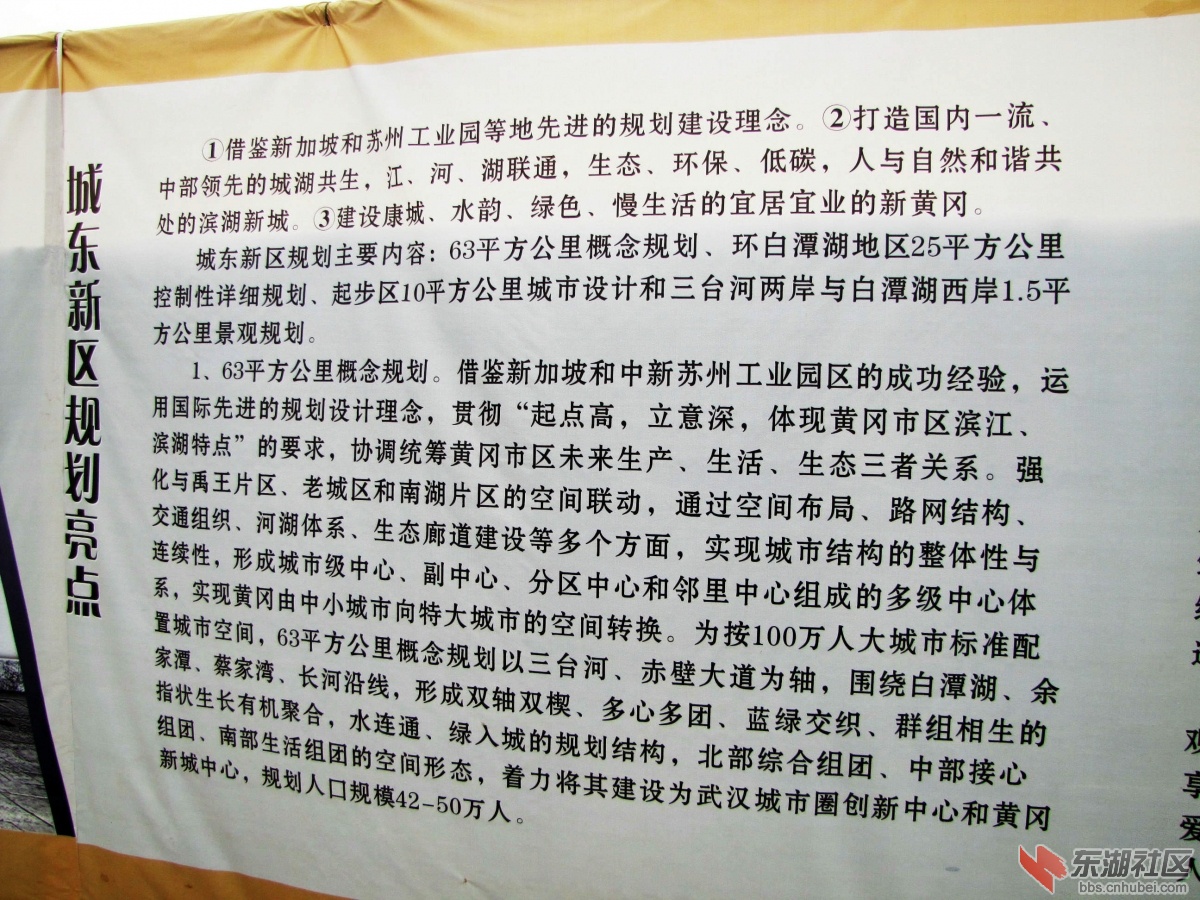 城东新区规划亮点
①借鉴新加坡和苏州工业园等地先进的规划建设理念。②打造国内一流、
中部领先的城湖共生，江、河、湖联通，生态、环保、低碳，人与自然和谐共
处的滨湖新城。③建设康城、水韵、绿色、慢生活的宜居宜业的新黄冈。
城东新区规划主要内容：63平方公里概念规划、环白潭湖地区25平方公里
控制性详细规划、起步区10平方公里城市设计和三台河两岸与白潭湖西岸1.5平
方公里景观规划。
1、63平方公里概念规划。借鉴新加坡和中新苏州工业园区的成功经验，运
用国际先进的规划设计理念，贯彻“起点高，立意深，体现黄冈市区滨江、
滨湖特点”的要求，协调统筹黄冈市区未来生产、生活、生态三者关系。强
化与禹王片区、老城区和南湖片区的空间联动，通过空间布局、路网结构、
交通组织、河湖体系、生态廊道建设等多个方面，实现城市结构的整体性与
连续性，形成城市级中心、副中心、分区中心和邻里中心组成的多级中心体
系，实现黄冈由中小城市向特大城市的空间转换。为按100万人大城市标准配
置城市空间，63平方公里概念规划以三台河、赤壁大道为轴，围绕白潭湖、余
家潭、蔡家湾、长河沿线，形成双轴双楔、多心多团、蓝绿交织、群组相生的
指状生长有机聚合，水连通、绿入城的规划结构，北部综合组团、中部接心
组团、南部生活组团的空间形态，着力将其建设为武汉城市圈创新中心和黄冈
新城中心，规划人口规模42-50万人。
观
享
爱
人
东湖社区
bbs.cnhubei.com